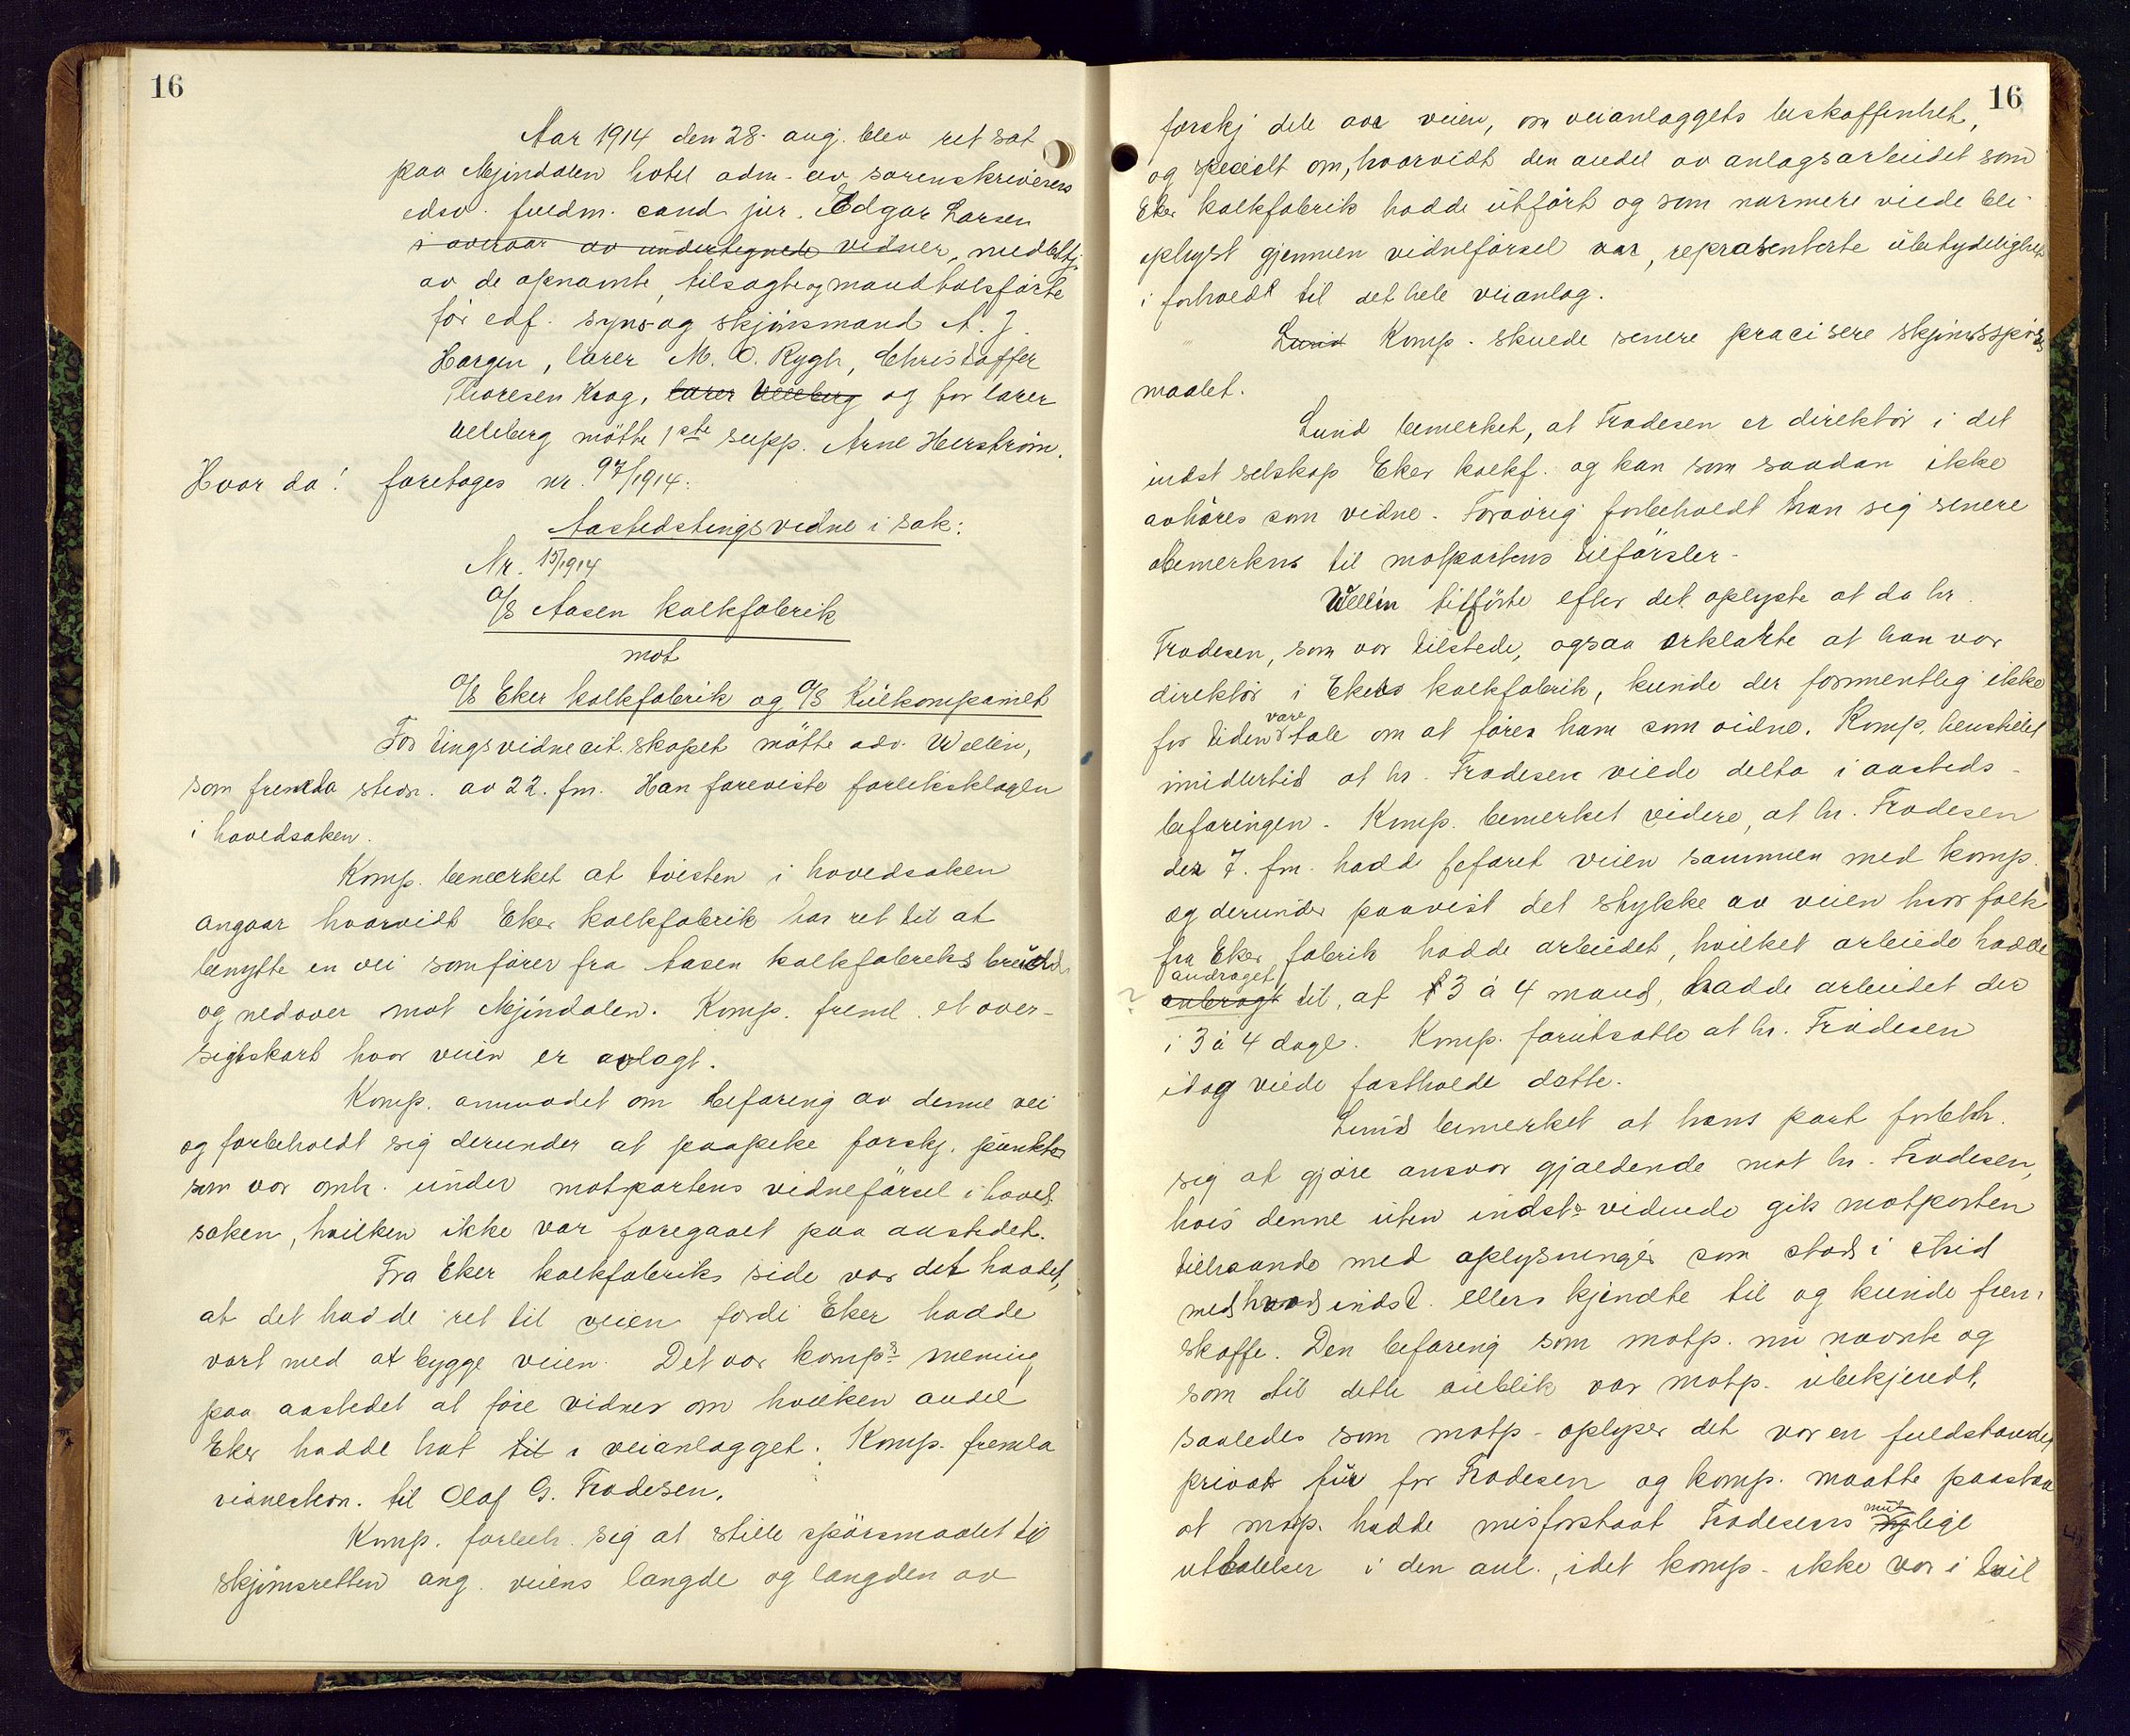 16
Aar 1914 den 28. aug. blev ret sat
paa Mjøndalen hotel adm. av sorenskriverens
edsv. fuldm. cand. jur. Edgar Larsen
i overvær av undertegnede vidner, medbetj.
av de opnævnte, tilsagte og mandtalsførte
før edf. syns og skjønsmænd A. J.
Horgen, lærer M. O. Rygh, Christoffer
Thoresen Krog, lærer Ulleberg og for lærer
Ulleberg møtte 1ste supp. Arne Herstrøm.
Hvor da! foretages nr. 97/1914:
Aastedstingsvidne i sak:
Nr. 15/1914
A/S Aasen kalkfabrik
mot
A/S Eker kalkfabrik og A/S Kulkompaniet
For tingsvidne cit. skapet møtte adv. Wellén,
som fremla stevn. av 22. fm. Han foreviste forliksklagen
i hovedsaken.
Komp. bemerket at tvisten i hovedsaken
angaar hvorvidt Eker kalkfabrik har ret til at
benytte en vei som fører fra Aasen kalkfabriks brudd
og nedover mot Mjøndalen. Komp. freml. et over-
sigtskart hvor veien er avlagt.
Komp. anmodet om befaring av denne vei
og forbeholdt sig derunder at paapeke forskj. punkter
som var omh. under motpartens vidneførsel i hoved-
saken, hvilken ikke var foregaaet paa aastedet.
Fra Eker kalkfabriks side var det hævdet,
at det hadde ret til veien fordi Eker hadde
vært med at bygge veien. Det var komps mening
paa aastedet at føre vidner om hvilken andel
Eker hadde hat til i veianlægget. Komp. fremla
vidnestevn. til Olaf G. Frodesen.
Komp. forbeh. sig at stille spørsmaalet til
skjønsretten ang. veiens længde og længden av
16
forskj dele av veien, om veianlæggets beskaffenhet,
og specielt om, hvorvidt den andel av anlægsarbeidet som
Eker kalkfabrik hadde utført og som nærmere vilde bli
oplyst gjennem vidneførsel var, repræsenterte ubetydelighet
i forhold til det hele veianlæg.
Lund Komp. skulde senere præcisere skjønsspørs
maalet.
Lund bemerket, at Frodesen er direktør i det
indst selskap Eker kalkf. og kan som saadan ikke
avhøres som vidne. Forøvrig forbeholdt han sig senere
bemerkn til motpartens tilførsler.
Wellén tilførte efter det oplyste at da hr.
Frodesen, som var tilstede, ogsaa erklærte at han var
direktør i Ekers kalkfabrik, kunde der formentlig ikke
for tiden være tale om at føres ham som vidne. Komp. henstillet
imidlertid at hr. Frodesen vilde delta i aasteds-
befaringen. Komp. bemerket videre, at hr. Frodesen
den 7. fm. hadde befaret veien sammen med komp.
og derunder paavist det stykke av veien hvor folk
fra Eker fabrik hadde arbeidet, hvilket arbeide hadde
? anbragt andraget til, at 3 à 4 mand, hadde arbeidet der
i 3 à 4 dage. Komp. forutsatte at hr. Frodesen
idag vilde fastholde dette.
Lund bemerket at hans part forbeh.
sig at gjøre ansvar gjældende mot hr. Frodesen,
hvis denne uten indsts vidende gik motparten
tilhaande med oplysninger som stod i strid
med hvad indst. ellers kjendte til og kunde frem-
skaffe. Den befaring som motp. nu nævnte og
som til dette øieblik var motp. ubekjendt,
saaledes som motp. oplyser det var en fuldstændig
privat tur for Frodesen og komp. maatte paastaa
at motp. hadde misforstaat Frodesens mundtlige
uttalelser i den anl., idet komp. ikke var i tvil